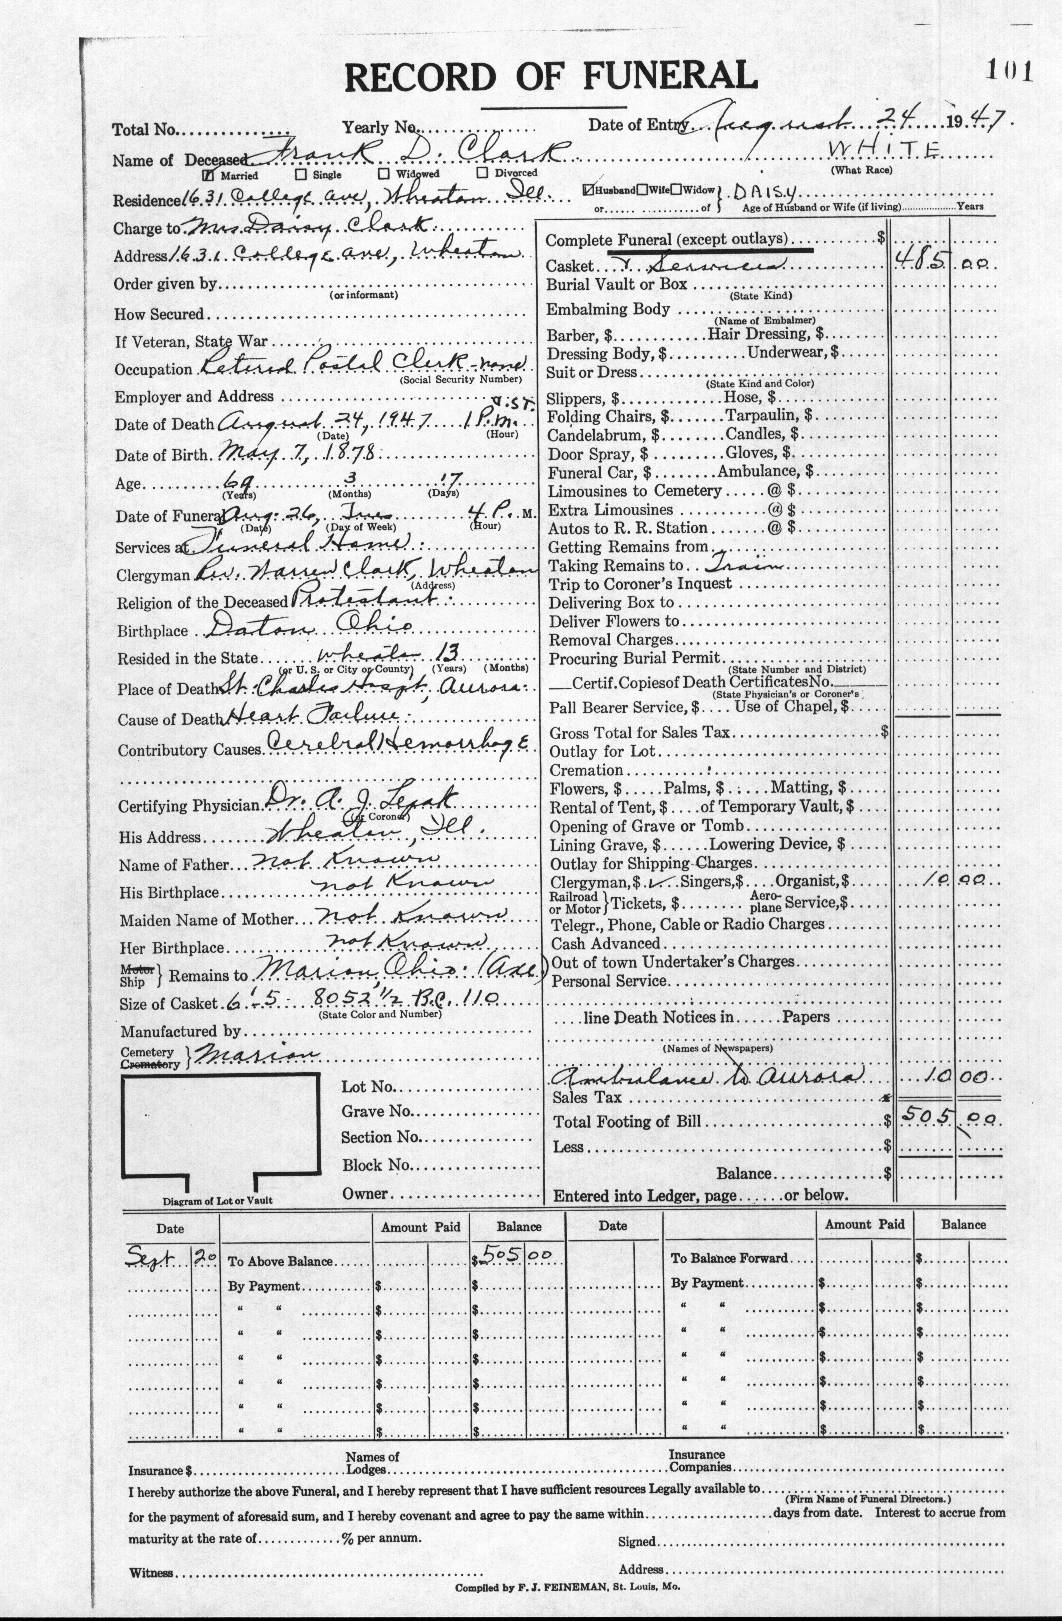 101
RECORD OF FUNERAL
Total No. Yearly No. Date of Entry August 24 1947.
Name of Deceased Frank D. Clark WHITE
Married Single Widowed Divorced (What Race)
Residence 1631 College Ave, Wheaton Ill. Husband Wife Widow or of DAISY
Age of Husband or Wife (if living) Years
Charge to Mrs. Daisy Clark
Address 1631 College Ave, Wheaton
Order given by
(or informant)
How Secured
If Veteran, State War
Occupation Retired Postal Clerk - none
(Social Security Number)
Employer and Address
Date of Death August 24, 1947 1 P.M. D.S.T.
(Date) (Hour)
Date of Birth May 7, 1878
Age 69 3 17
(Years) (Months) (Days)
Date of Funeral Aug. 26, Tues 4 P. M.
(Date) (Day of Week) (Hour)
Services at Funeral Home
Clergyman Rev. Warren Clark, Wheaton
(Address)
Religion of the Deceased Protestant
Birthplace Daton Ohio
Resided in the State Wheaton 13
(or U. S. or City or County) (Years) (Months)
Place of Death St. Charles Hospt, Aurora
Cause of Death Heart Failure
Contributory Causes Cerebral Hemorrhage
Certifying Physician Dr. A. J. Lepak
(or Coroner)
His Address Wheaton, Ill.
Name of Father not Known
His Birthplace not Known
Maiden Name of Mother not Known
Her Birthplace not Known
Motor Ship } Remains to Marion, Ohio.
Size of Casket 6'-5 - 8052 1/2 B.C. 110
(State Color and Number)
Manufactured by
Cemetery Crematory } Marion
Lot No.
Grave No.
Section No.
Block No.
Owner
Diagram of Lot or Vault
Complete Funeral (except outlays) $
Casket & Services 485 00
Burial Vault or Box
(State Kind)
Embalming Body
(Name of Embalmer)
Barber, $ Hair Dressing, $
Dressing Body, $ Underwear, $
Suit or Dress
(State Kind and Color)
Slippers, $ Hose, $
Folding Chairs, $ Tarpaulin, $
Candelabrum, $ Candles, $
Door Spray, $ Gloves, $
Funeral Car, $ Ambulance, $
Limousines to Cemetery @ $
Extra Limousines @ $
Autos to R. R. Station @ $
Getting Remains from
Taking Remains to Train
Trip to Coroner's Inquest
Delivering Box to
Deliver Flowers to
Removal Charges
Procuring Burial Permit
(State Number and District)
Certif. Copies of Death Certificates No.
(State Physician's or Coroner's
Pall Bearer Service, $ Use of Chapel, $
Gross Total for Sales Tax $
Outlay for Lot
Cremation
Flowers, $ Palms, $ Matting, $
Rental of Tent, $ of Temporary Vault, $
Opening of Grave or Tomb
Lining Grave, $ Lowering Device, $
Outlay for Shipping Charges
Clergyman, $ ✓ Singers, $ Organist, $ 10 00
Railroad or Motor } Tickets, $ Aeroplane Service, $
Telegr., Phone, Cable or Radio Charges
Cash Advanced
Out of town Undertaker's Charges
Personal Service
line Death Notices in Papers
(Names of Newspapers)
Ambulance to Aurora 10 00
Sales Tax
Total Footing of Bill $ 505 00
Less $
Balance $
Entered into Ledger, page or below.
Date Amount Paid Balance Date Amount Paid Balance
Sept 20 To Above Balance $505 00 To Balance Forward $
By Payment $ $ By Payment $ $
" " $ $ " " $ $
" " $ $ " " $ $
" " $ $ " " $ $
" " $ $ " " $ $
" " $ $ " " $ $
" " $ $ " " $ $
Insurance $ Names of Lodges Insurance Companies
I hereby authorize the above Funeral, and I hereby represent that I have sufficient resources Legally available to
(Firm Name of Funeral Directors.)
for the payment of aforesaid sum, and I hereby covenant and agree to pay the same within days from date. Interest to accrue from
maturity at the rate of % per annum. Signed
Witness Address
Compiled by F. J. FEINEMAN, St. Louis, Mo.